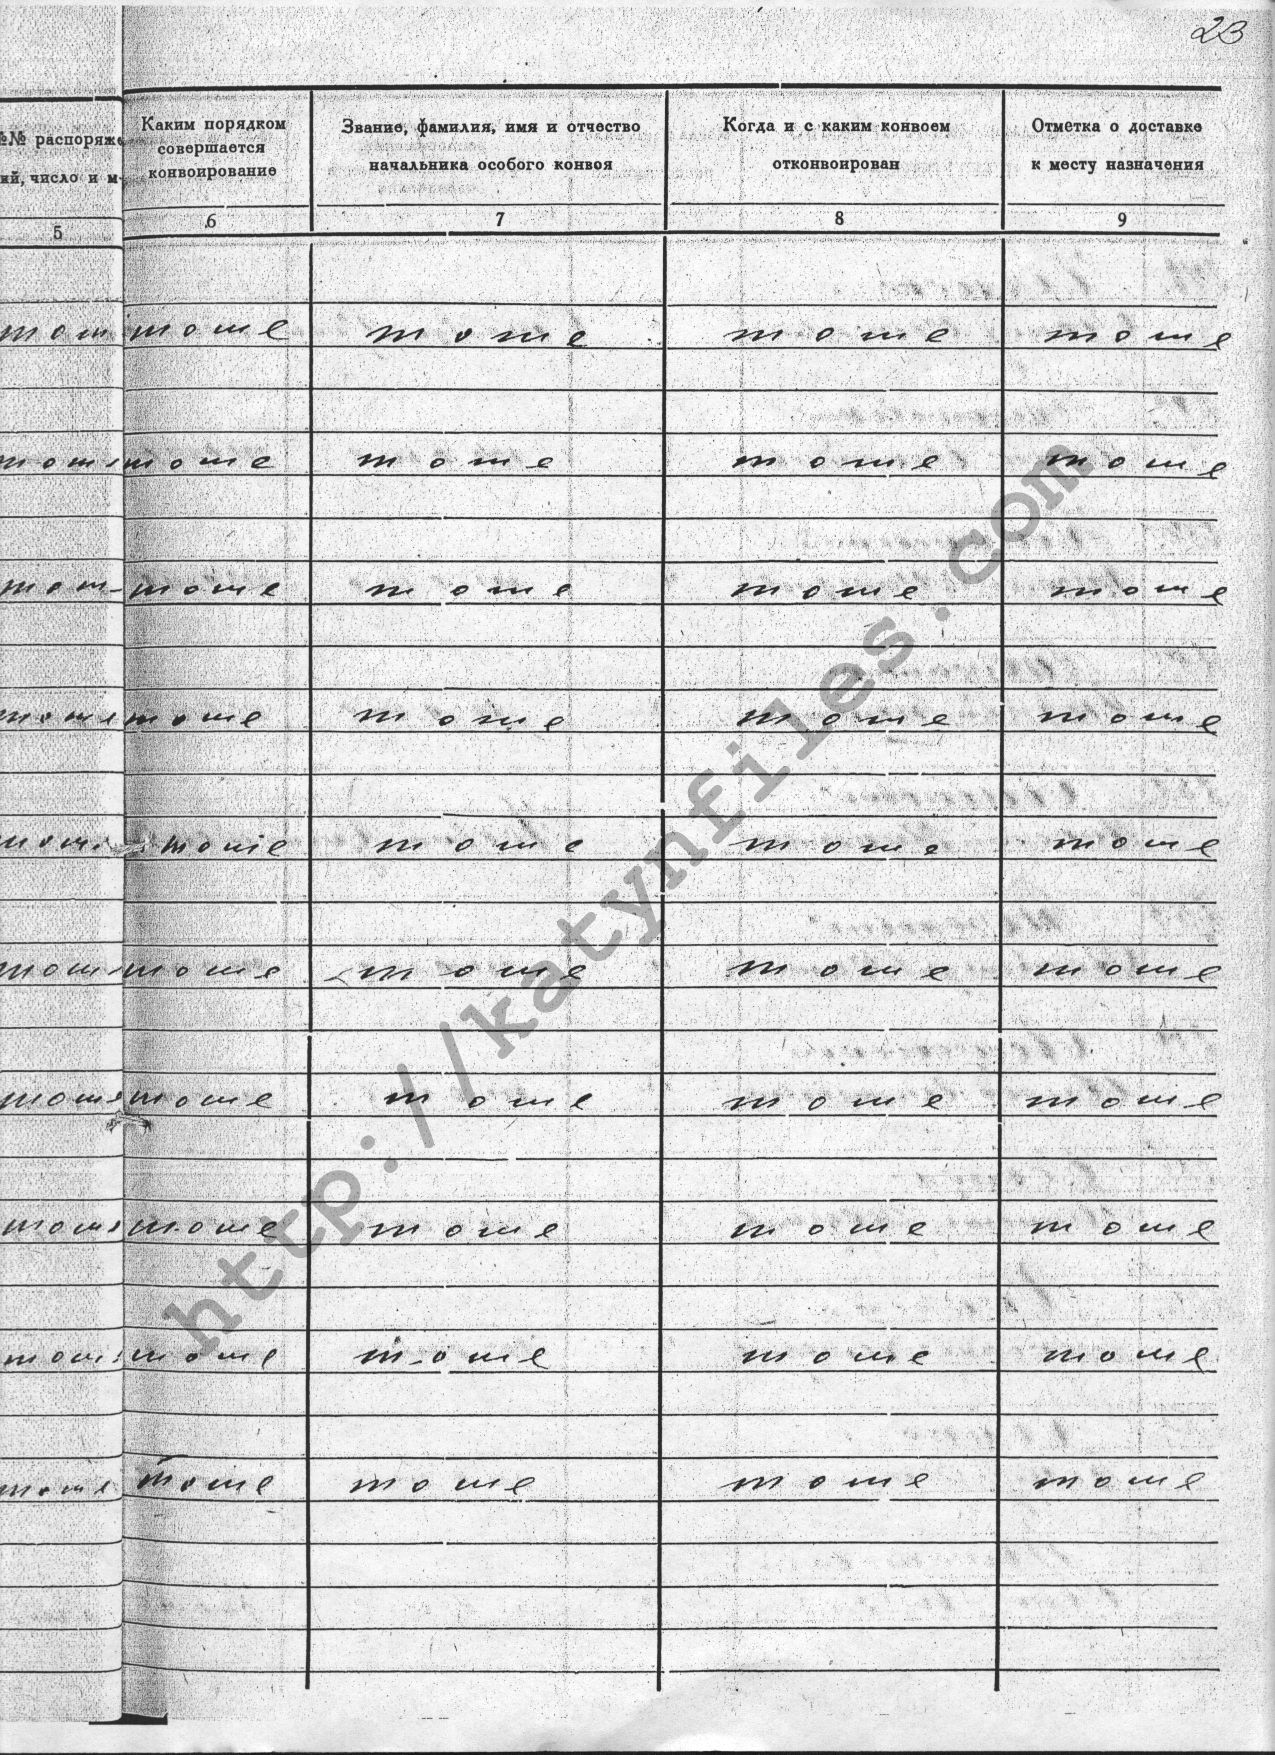 23
№№ распоряже
ий, число и м
Каким порядком
совершается
конвоирование
Звание, фамилия, имя и отчество
начальника особого конвоя
Когда и с каким конвоем
отконвоирован
Отметка о доставке
к месту назначения
5 6 7 8 9
тоже тоже тоже тоже
тоже тоже тоже тоже
тоже тоже тоже тоже
тоже тоже тоже тоже
тоже тоже тоже тоже
тоже тоже тоже тоже
тоже тоже тоже тоже
тоже тоже тоже тоже
тоже тоже тоже тоже
тоже тоже тоже тоже тоже
http://katynfiles.com